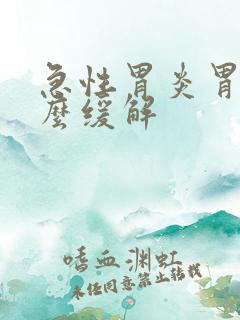 急性胃炎胃
麼緩解
嗜血渊虹
未经同意禁止转载